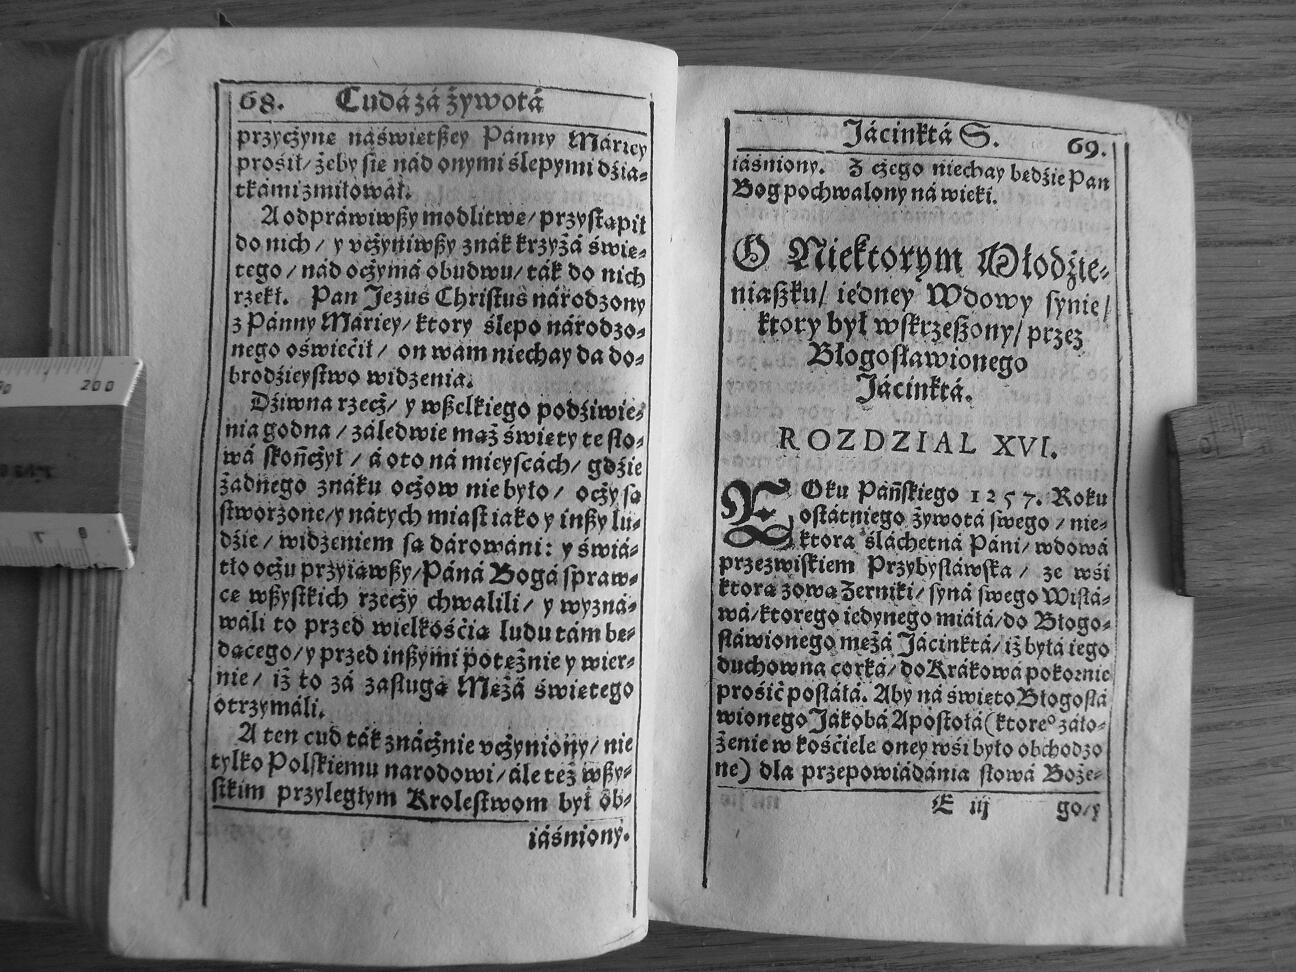 68. Cudá zá żywotá
przyczynę naświetßey Pánny Máriey
prośił/ żeby śię nád onymi ślepymi dźia-
tkámi zmiłował.
A odpráwiwßy modlitwę/ przystąpił
do nich/ y vczyniwßy znák krzyżá świę-
tego/ nád oczymá obudwu/ ták do nich
rzekł. Pan Jezus Christus národzony
z Pánny Máriey/ ktory ślepo národzo-
nego oświećił/ on wam niechay da do-
brodźieystwo widzenia.
Dźiwna rzecz/ y wßelkiego podźiwie-
nia godna/ záledwie mąż święty te sło-
wá skończył/ á oto ná mieyscách/ gdźie
żadnego znáku oczow nie było/ oczy są
stworzone/ y nátych miast iáko y inßy lu-
dźie/ widzeniem są dárowáni: y świá-
tło oczu przyiąwßy/ Páná Bogá spraw-
cę wßystkich rzeczy chwalili/ y wyzná-
wáli to przed wielkośćią ludu tám bę-
dącego/ y przed inßymi potężnie y wier-
nie/ iż to zá zasługą Mężá świętego
otrzymáli.
A ten cud ták znácznie vczyniony/ nie
tylko Polskiemu narodowi/ ále też wßy-
stkim przyległym Krolestwom był ob-
iáśniony.
Jácinktá S. 69.
iáśniony. Z czego niechay będźie Pan
Bog pochwalony ná wieki.
O Niektorym Młodźie-
niaßku/ iedney Wdowy synie/
ktory był wskrzeßony/ przez
Błogosławionego
Jácinktá.
ROZDZIAL XVI.
ROku Páńskiego 1257. Roku
ostátniego żywotá swego/ nie-
ktora śláchetna Páni/ wdowá
przezwiskiem Przybysłáwska/ ze wśi
ktorą zową Zerniki/ syná swego Wisłá-
wá/ ktorego iedynego miáłá/ do Błogo-
słáwionego mężá Jácinktá/ iż byłá iego
duchowną corką/ do Krákowá pokornie
prośić posłáłá. Aby ná święto Błogosłá
wionego Jákobá Apostołá (ktoreº záło-
żenie w kośćiele oney wśi było obchodzo
ne) dla przepowiádánia słowá Boże-
E iij go/ y